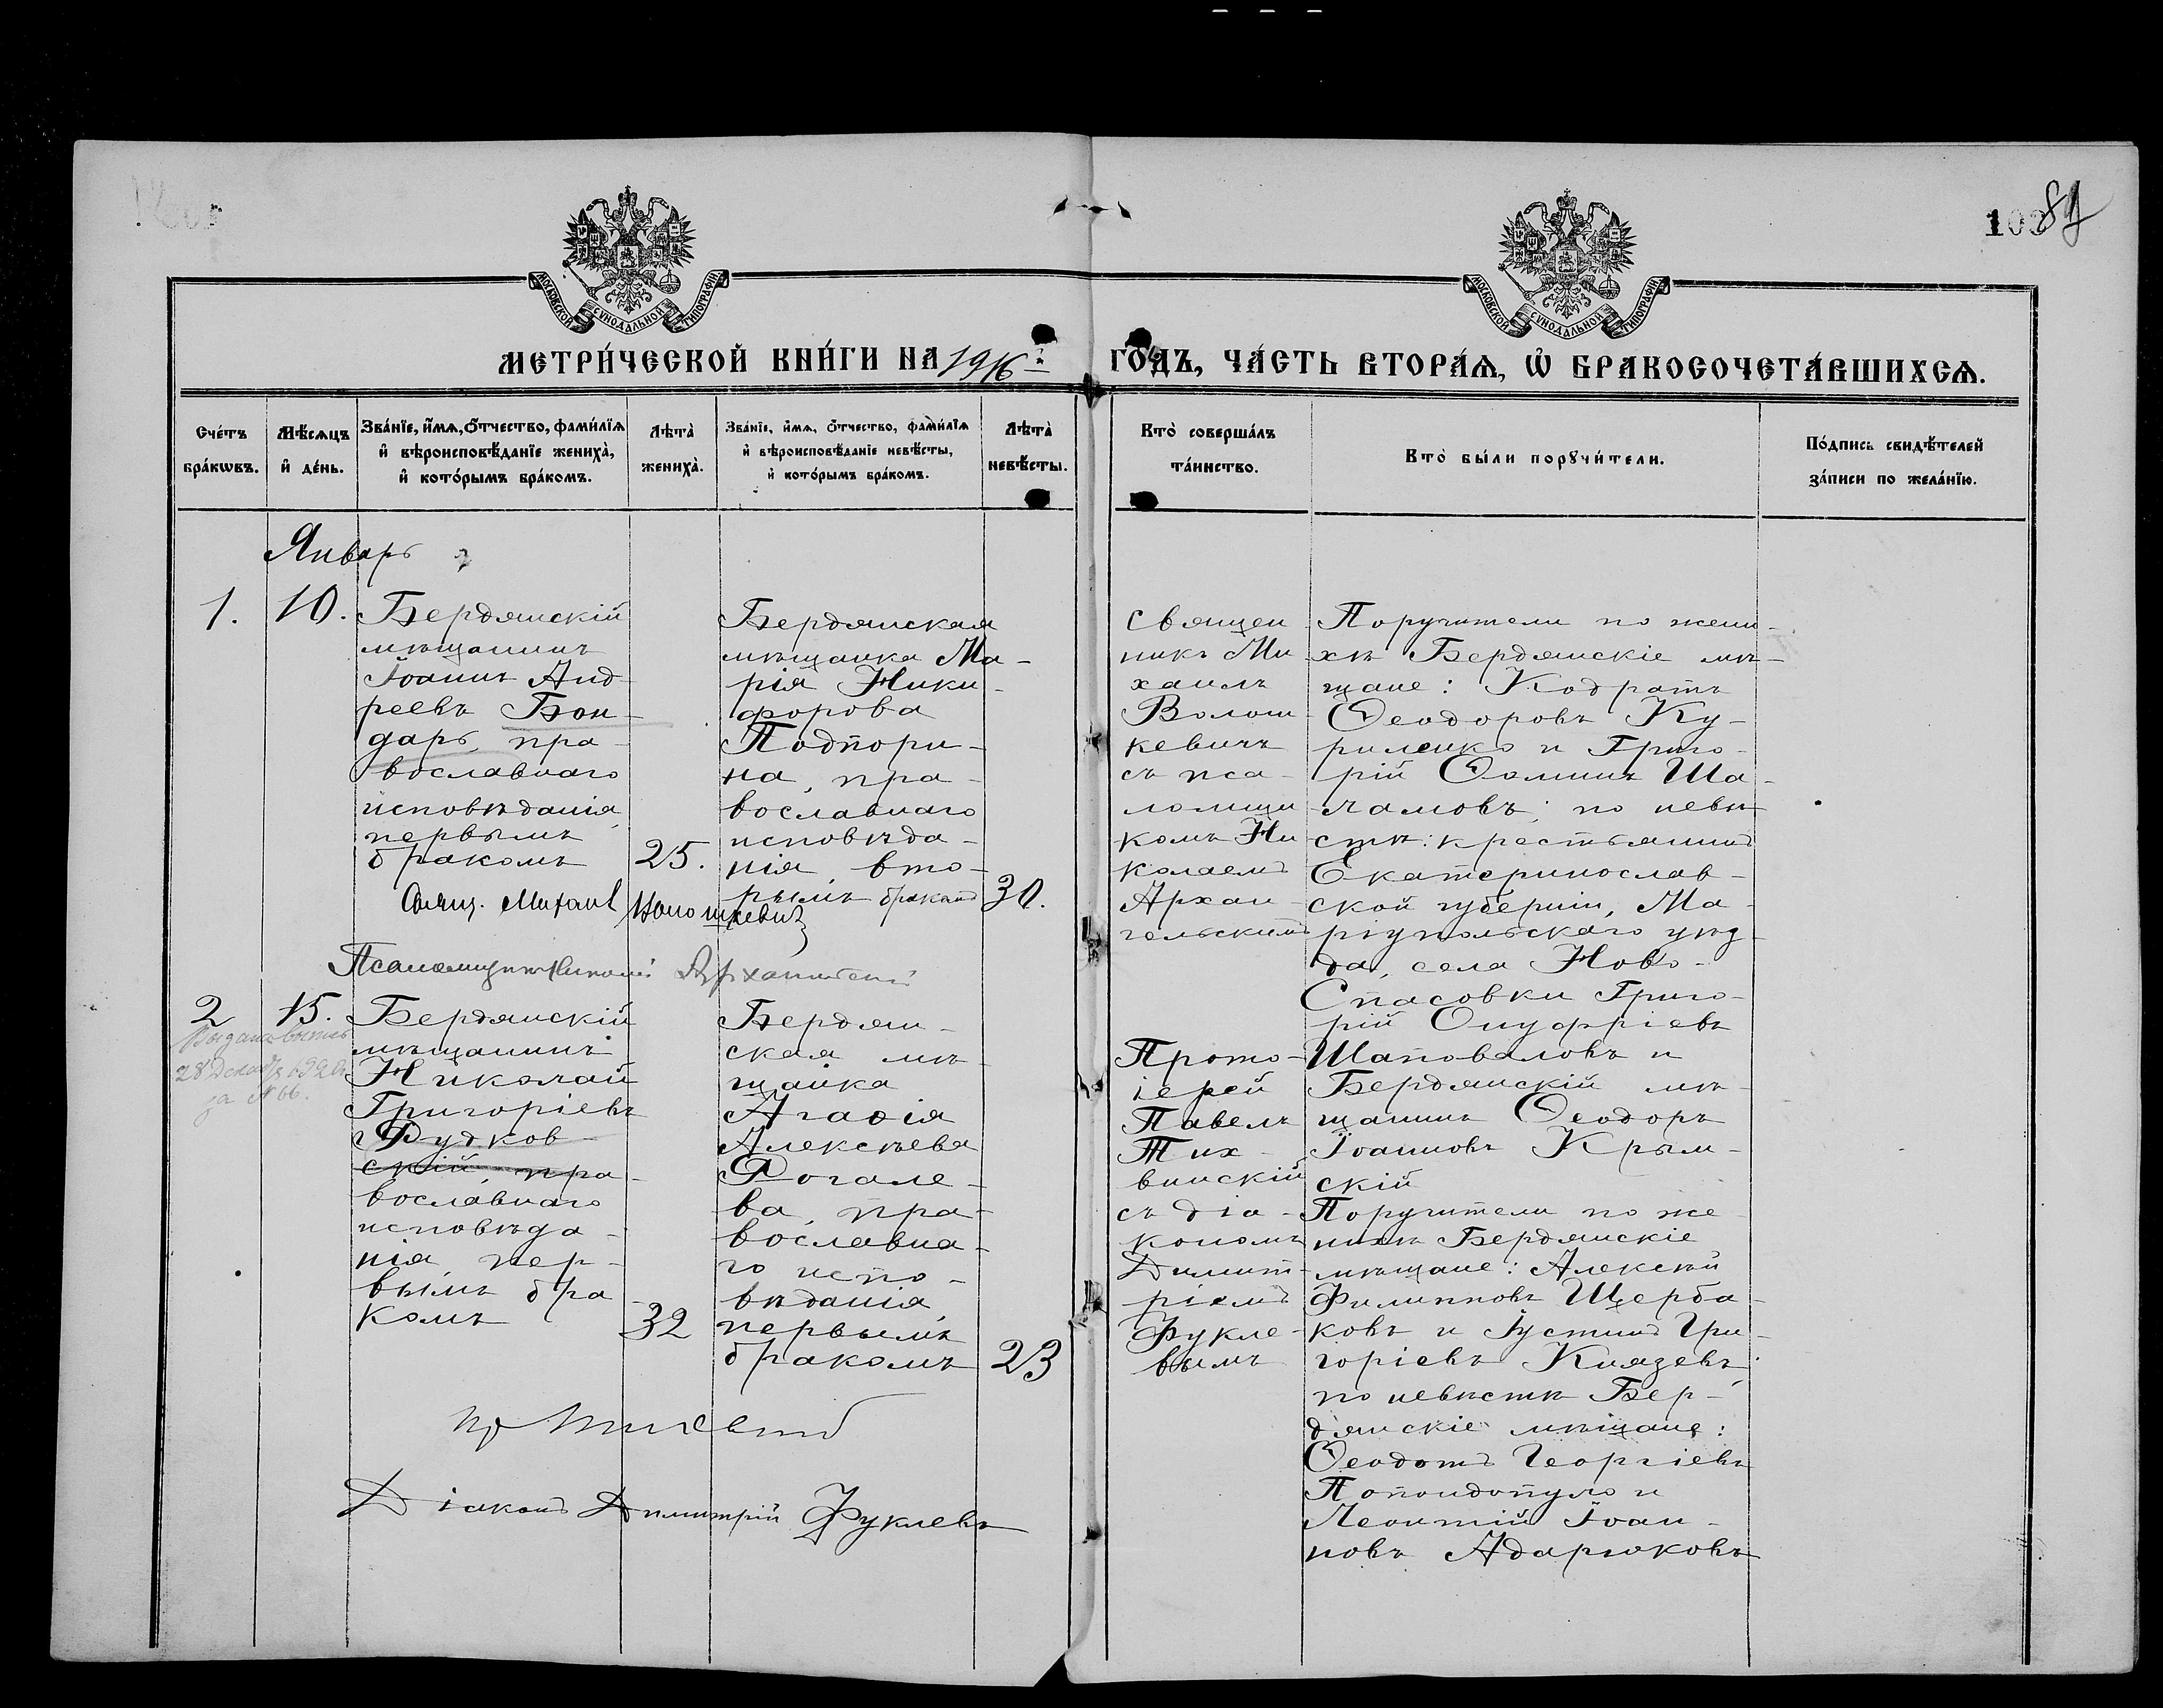 103 81
МОСКОВСКОЙ СѴНОДАЛЬНОЙ ТИПОГРАФІИ
МОСКОВСКОЙ СѴНОДАЛЬНОЙ ТИПОГРАФІИ
МЕТРИ́ЧЕСКОЙ КНИ́ГИ НА 1916 ГО́ДЪ, ЧА́СТЬ ВТОРА́Ѧ, Ѽ БРАКОСОЧЕТА́ВШИХСѦ.
Сче́тъ
бра́кѡвъ.
Мѣ́сѧцъ
и҆ де́нь.
Зва́нїе, и҆́мѧ, ѻ҆́тчество, фами́лїѧ
и҆ вѣроисповѣ́данїе жениха̀,
и҆ кото́рымъ бра́комъ.
Лѣта̀
жениха̀.
Зва́нїе, и҆́мѧ, ѻ҆́тчество, фами́лїѧ
и҆ вѣроисповѣ́данїе невѣ́сты,
и҆ кото́рымъ бра́комъ.
Лѣта̀
невѣ́сты.
Кто̀ соверша́лъ
та́инство.
Кто̀ бы́ли порꙋчи́тели.
По́дпись свидѣ́телей
за́писи по жела́нїю.
Январь
1.
10.
Бердянскій
мѣщанинъ
Іоаннъ Анд-
реевъ Бон-
дарь, пра-
вославнаго
исповѣданія,
первымъ
бракомъ
25.
Бердянская
мѣщанка Ма-
рія Ники-
форова
Подпори-
на, пра-
вославнаго
исповѣда-
нія, вто-
рымъ бракомъ
30.
Священ-
никъ Ми-
хаилъ
Волош-
кевичъ
съ пса-
ломщи-
комъ Ни-
колаемъ
Архан-
гельскимъ
Поручители по жени-
хѣ Бердянскіе мѣ-
щане: Кодратъ
Ѳеодоровъ Ку-
риленко и Григо-
рій Ѳоминъ Ша-
ламовъ; по невѣ-
стѣ: крестьянинъ
Екатеринослав-
ской губерніи, Ма-
ріупольскаго уѣз-
да, села Ново-
Спасовки Григо-
рій Онуфріевъ
Шаповаловъ и
Бердянскій мѣ-
щанинъ Ѳеодоръ
Іоанновъ Крым-
скій
Свящ. Михаил Волошкевичъ
Псаломщикъ Николай Архангельскій
2
15.
Выдана выпись
28 Декабр 1920
за № 66.
Бердянскій
мѣщанинъ
Николай
Григоріевъ
Рудков-
скій, пра-
вославнаго
исповѣда-
нія, пер-
вымъ бра
комъ
32
Бердян-
ская мѣ-
щанка
Агаѳія
Алексѣева
Рогале-
ва, пра-
вославна-
го испо-
вѣданія,
первымъ
бракомъ
23
Прото-
іерей
Павелъ
Тих-
винскій
съ діа-
кономъ
Димит-
ріемъ
Фукле-
вымъ
Поручители по же-
нихѣ Бердянскіе
мѣщане: Алексѣй
Филипповъ Щерба-
ковъ и Іустинъ Гри-
горіевъ Князевъ;
по невѣстѣ Бер-
дянскіе мѣщане:
Ѳеодотъ Георгіевъ
Попондопуло и
Леонтій Іоан-
новъ Адарюковъ
Діаконъ Димитрій Фуклевъ